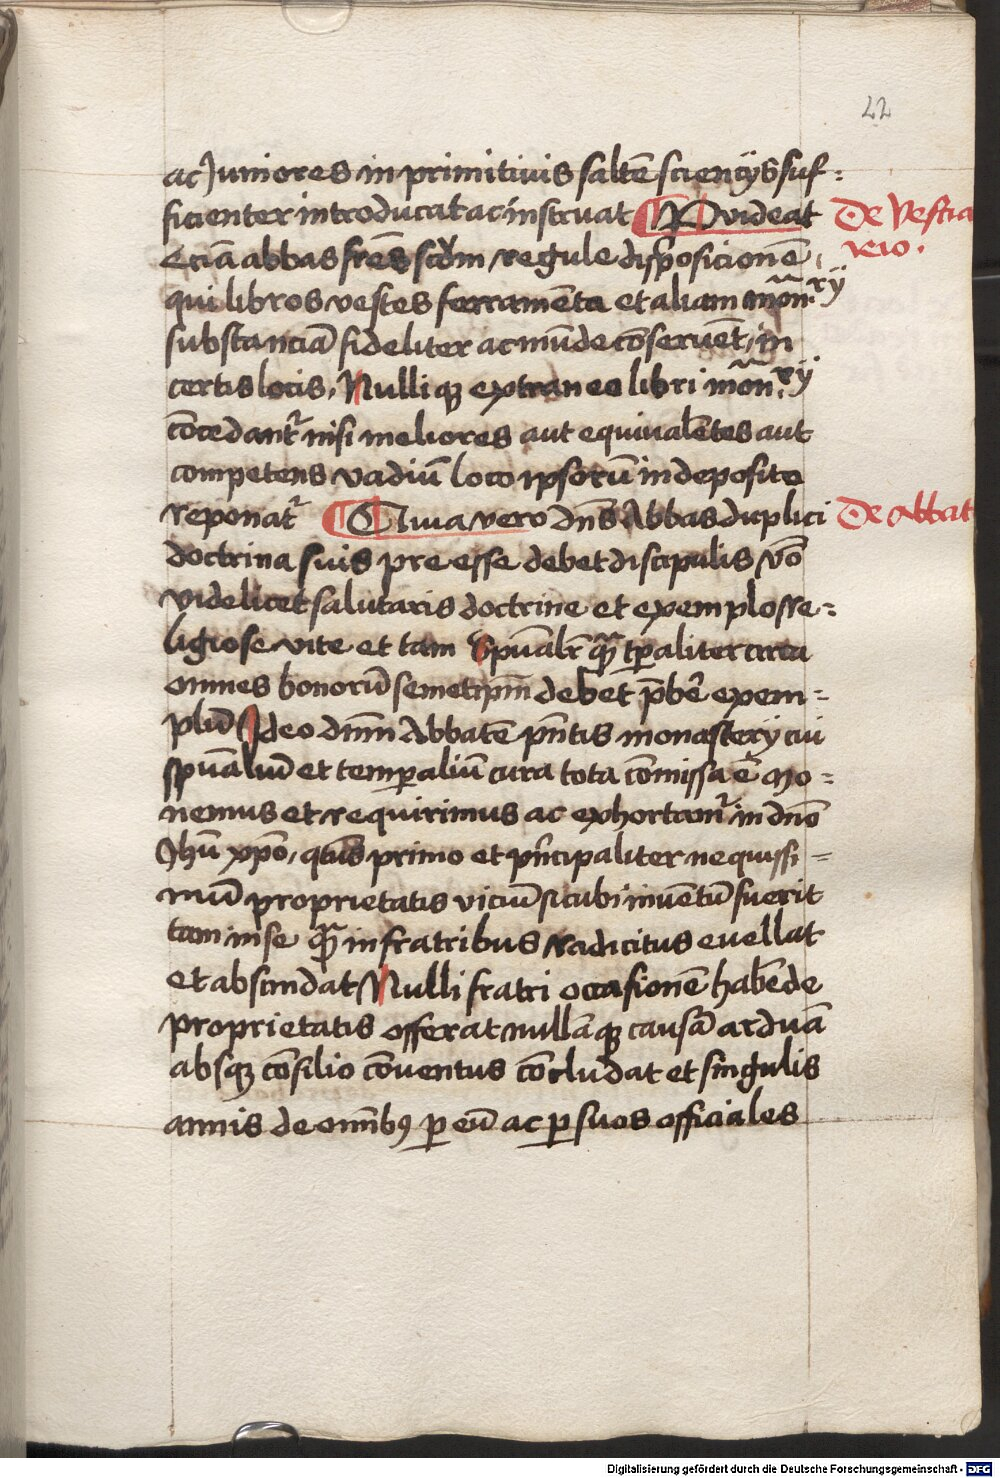 22
ac Juniores in primitiuis saltē sciencijs suf-
ficienter introducat ac instruat ¶ Prouideat
De Vestia
rio.
Eciā abbas frēs scdm regule disposicionē,
qui libros vestes ferramēta et aliam mōn.rij
substanciā fideliter ac mūde cōseruēt, in
certis locis, Nulliqꝫ extraneo libri mōn.rij
cōcedantr nisi meliores aut equiualētes aut
competens vadiū loco ipsorū in deposito
reponatr ¶ Quia vero dns Abbas duplici
De Abbat
doctrina suis pre esse debet discipulis vō
videlicet salutaris doctrine et exemplo re-
ligiose vite et tam spūalr qm tpaliter circa
omnes bonorū semetipm debet pbe exem-
plū Ideo dnm Abbatē pntis monasterij cui
spūaliū et temꝑaliū cura tota cōmissa ē mo-
nemus et requirimus ac exhortamr in dno
Jhu xpo, qtus primo et pncipaliter nequissi-
mū proprietatis viciū sicubi inuētū fuerit
tam in se qm in fratribus radicitus euellat
et abscindat Nulli fratri occasionē habēde
proprietatis offerat nullāqꝫ causā arduā
absqꝫ cōsilio cōuentus cōcludat et singulis
annis de omnibꝰ ꝑ eū ac ꝑ suos officiales
Digitalisierung gefördert durch die Deutsche Forschungsgemeinschaft - DFG